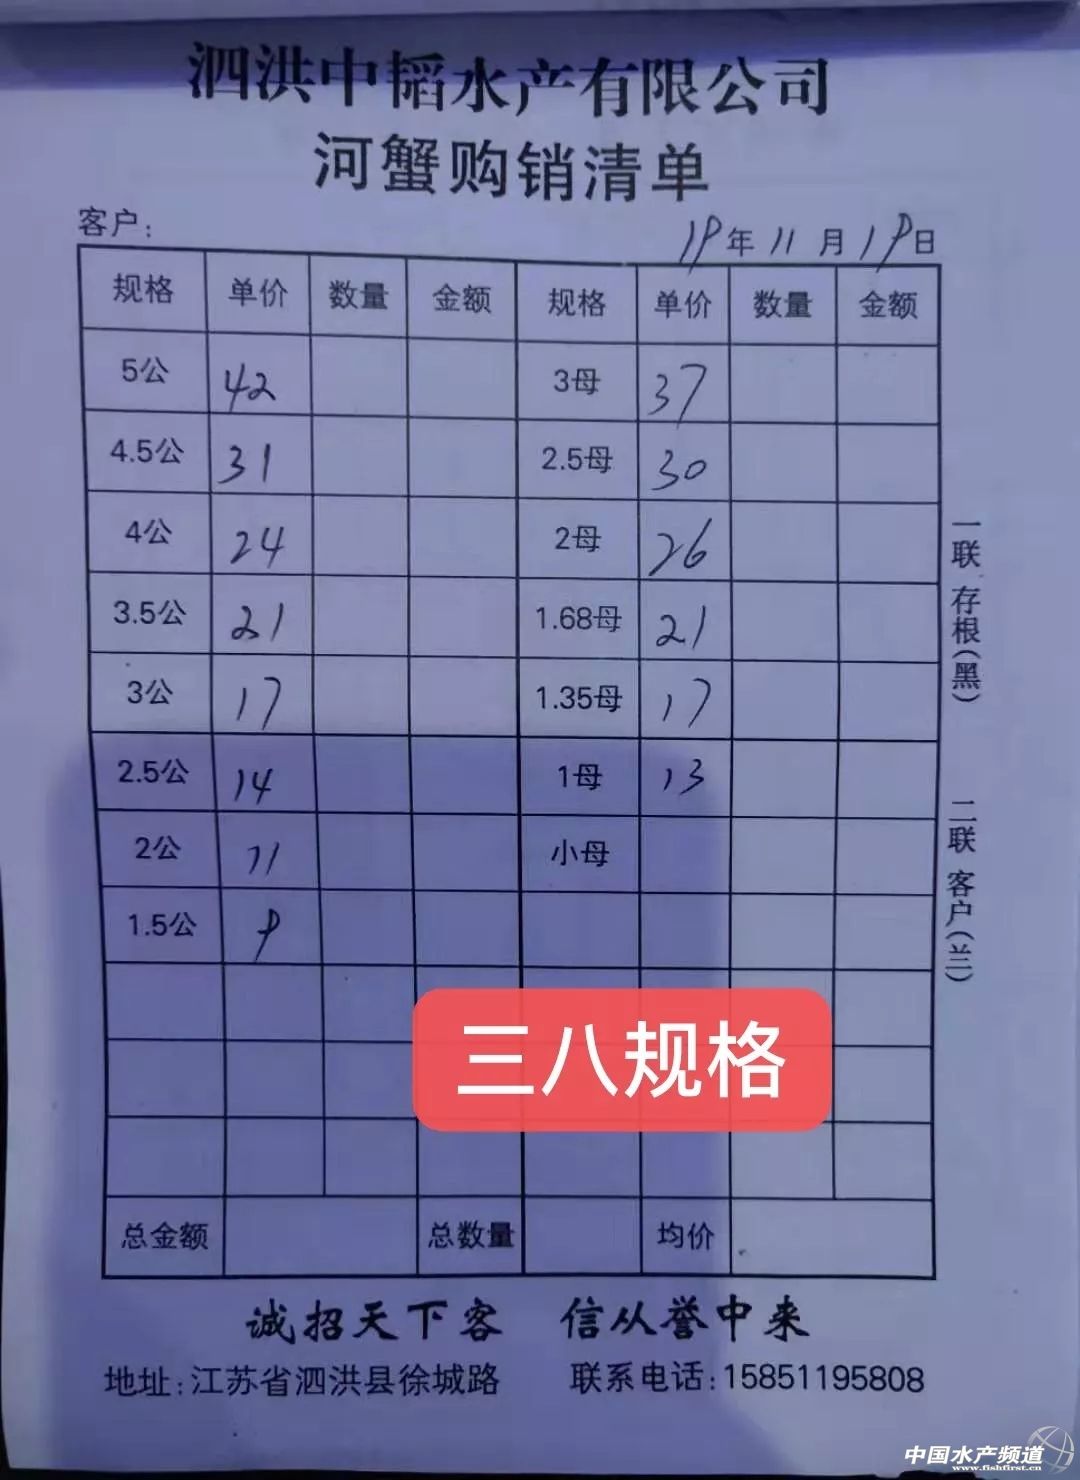 泗洪中韬水产有限公司
河蟹购销清单
客户:
19年11月19日
规格 单价 数量 金额 规格 单价 数量 金额
5公 42 3母 37
4.5公 31 2.5母 30
4公 24 2母 26
3.5公 21 1.68母 21
3公 17 1.35母 17
2.5公 14 1母 13
2公 11 小母
1.5公 9
三八规格
总金额 总数量 均价
一联 存根(黑) 二联 客户(兰)
诚招天下客 信从誉中来
地址:江苏省泗洪县徐城路 联系电话:15851195808
中国水产频道
www.fishfirst.cn